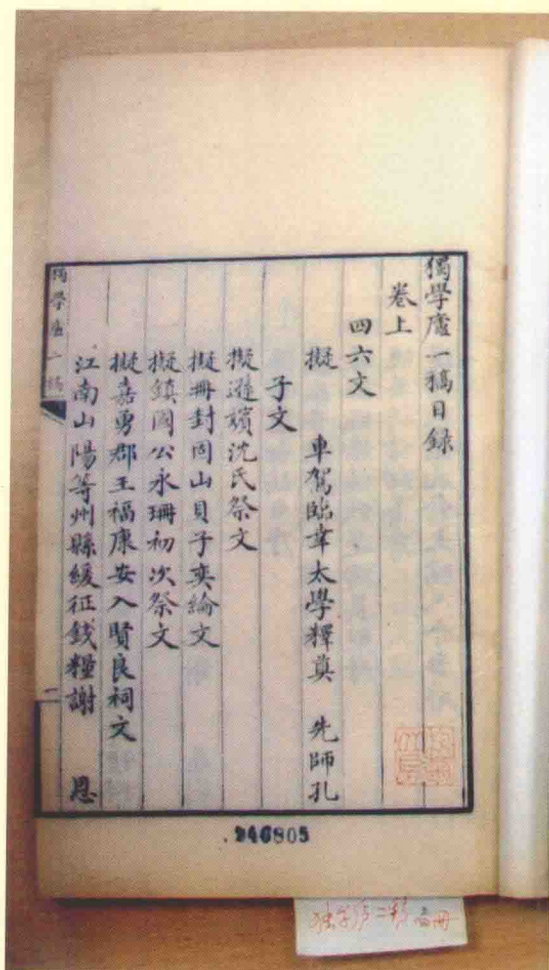 獨學廬二稿目錄
卷上
四六文
擬 車駕臨幸太學釋奠 先師孔
子文
擬遜嬪沈氏祭文
擬冊封固山貝子奕綸文
擬鎮國公永珊初次祭文
擬嘉勇郡王福康安入賢良祠文
江南山陽等州縣緩征錢糧謝 恩
獨學廬二稿
一
946805
独学庐二稿